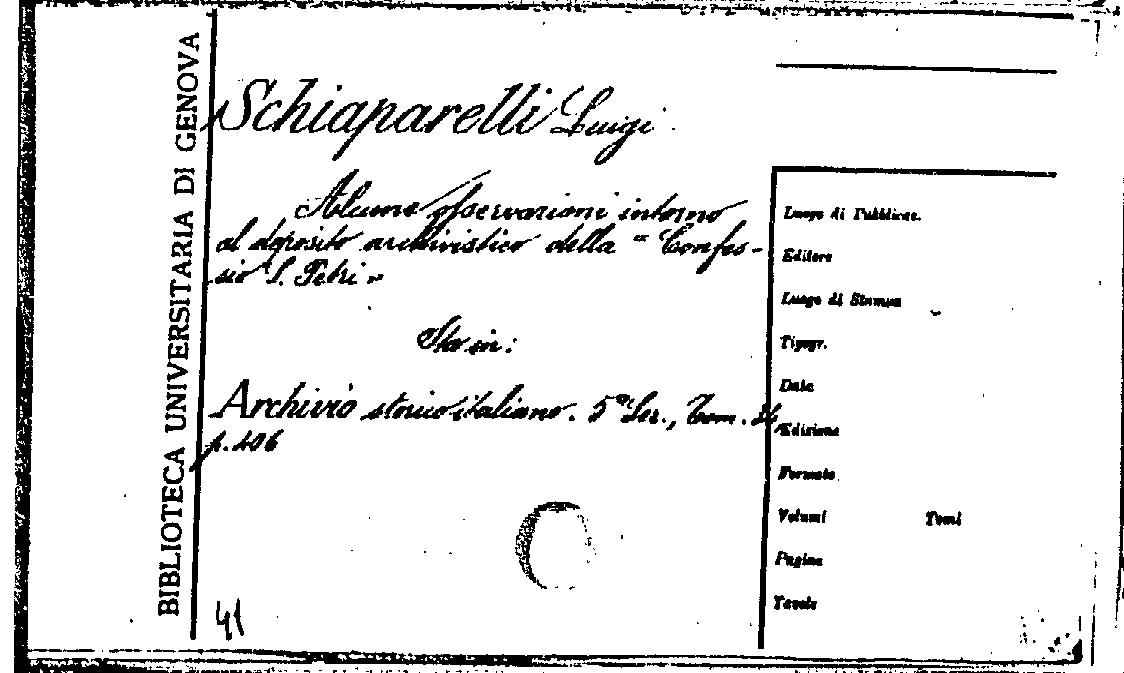 BIBLIOTECA UNIVERSITARIA DI GENOVA
Schiaparelli Luigi
Alcune osservazioni intorno
al deposito archivistico della "Confes-
sio S. Petri"
Sta in:
Archivio storico italiano. 5ª Ser., Tom.
p. 406
41
Luogo di Pubblicaz.
Editore
Luogo di Stampa
Tipogr.
Data
Edizione
Formato
Volumi Tomi
Pagine
Tavole